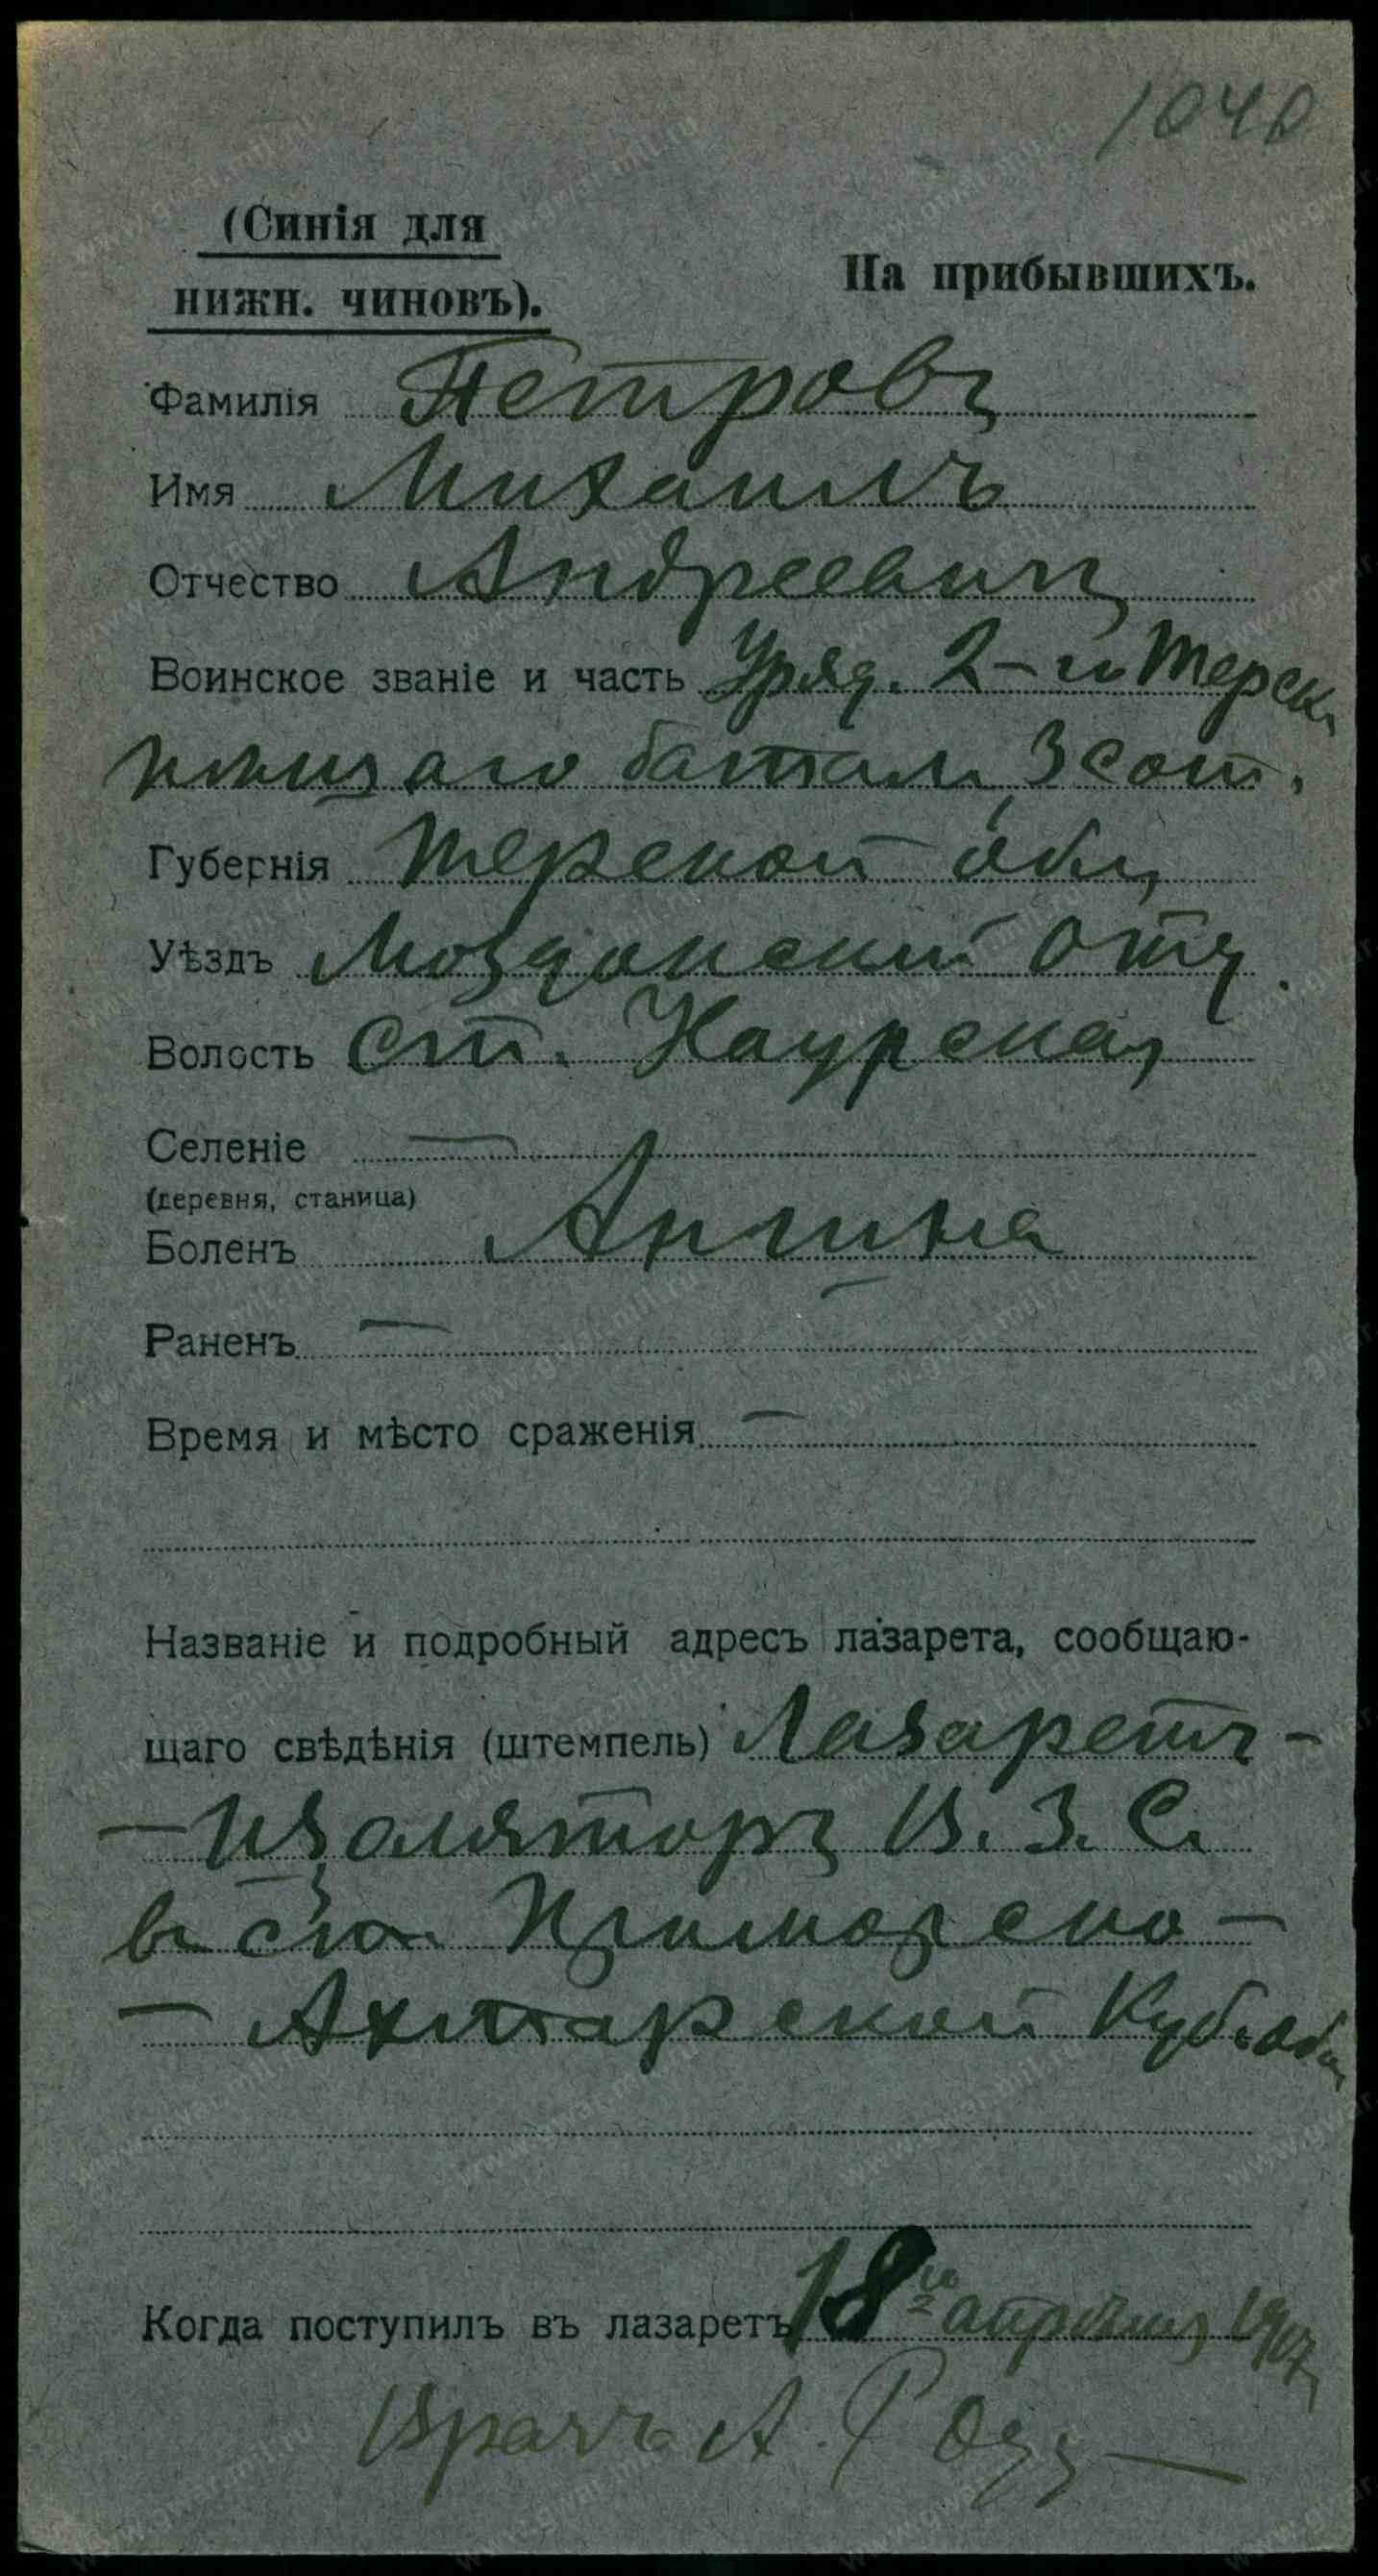 1040
(Синія для
нижн. чиновъ).
На прибывшихъ.
Фамилія Петровъ
Имя Михаилъ
Отчество Андреевичъ
Воинское званіе и часть Уряд. 2-го Терск.
пѣшаго батал. 3 сот.
Губернія Терской обл.
Уѣздъ Моздокскій отд.
Волость ст. Наурская
Селеніе —
(деревня, станица)
Боленъ Ангина
Раненъ —
Время и мѣсто сраженія —
Названіе и подробный адресъ лазарета, сообщаю-
щаго свѣдѣнія (штемпель) Лазаретъ-
-Изоляторъ В. З. С.
въ Приморско-
-Ахтарской Куб. обл.
Когда поступилъ въ лазаретъ 18го апрѣля 1917
Врачъ А.